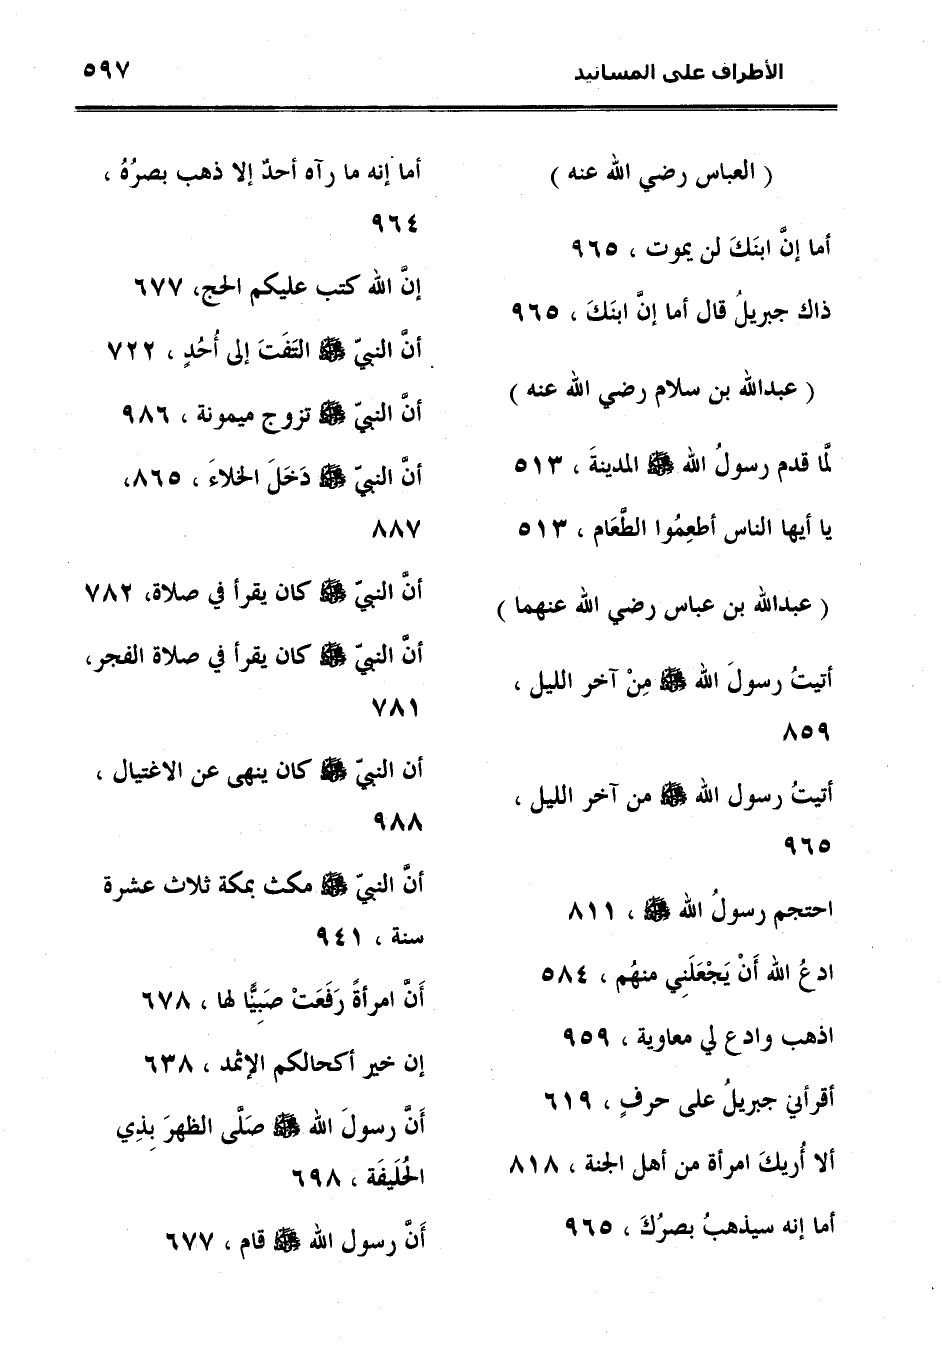 الأطراف على المسانيد ٥٩٧
( العباس رضي الله عنه )
أما إنَّ ابنَكَ لن يموت ، ٩٦٥
ذاك جبريلُ قال أما إنَّ ابنَكَ ، ٩٦٥
( عبدالله بن سلام رضي الله عنه )
لمَّا قدم رسولُ الله ﷺ المدينةَ ، ٥١٣
يا أيها الناس أطعِمُوا الطَّعَام ، ٥١٣
( عبدالله بن عباس رضي الله عنهما )
أتيتُ رسولَ الله ﷺ مِنْ آخر الليل ،
٨٥٩
أتيتُ رسول الله ﷺ من آخر الليل ،
٩٦٥
احتجم رسولُ الله ﷺ ، ٨١١
ادعُ الله أَنْ يَجْعَلَنِي منهُم ، ٥٨٤
اذهب وادع لي معاوية ، ٩٥٩
أقرأني جبريلُ على حرفٍ ، ٦١٩
ألا أُريكَ امرأة من أهل الجنة ، ٨١٨
أما إنه سيذهبُ بصرُكَ ، ٩٦٥
أما إنه ما رآه أحدٌ إلا ذهب بصرُهُ ،
٩٦٤
إنَّ الله كتب عليكم الحج، ٦٧٧
أنَّ النبيّ ﷺ التَفَتَ إلى أُحُدٍ ، ٧٢٢
أنَّ النبيّ ﷺ تزوج ميمونة ، ٩٨٦
أنَّ النبيّ ﷺ دَخَلَ الخلاءَ ، ٨٦٥،
٨٨٧
أنَّ النبيّ ﷺ كان يقرأ في صلاة، ٧٨٢
أنَّ النبيّ ﷺ كان يقرأ في صلاة الفجر،
٧٨١
أن النبيّ ﷺ كان ينهى عن الاغتيال ،
٩٨٨
أنَّ النبيّ ﷺ مكث بمكة ثلاث عشرة
سنة ، ٩٤١
أَنَّ امرأةً رَفَعَتْ صَبِيًّا لها ، ٦٧٨
إن خير أكحالكم الإثمد ، ٦٣٨
أَنَّ رسولَ الله ﷺ صَلَّى الظهرَ بِذِي
الحُلَيفَة ، ٦٩٨
أَنَّ رسول الله ﷺ قام ، ٦٧٧